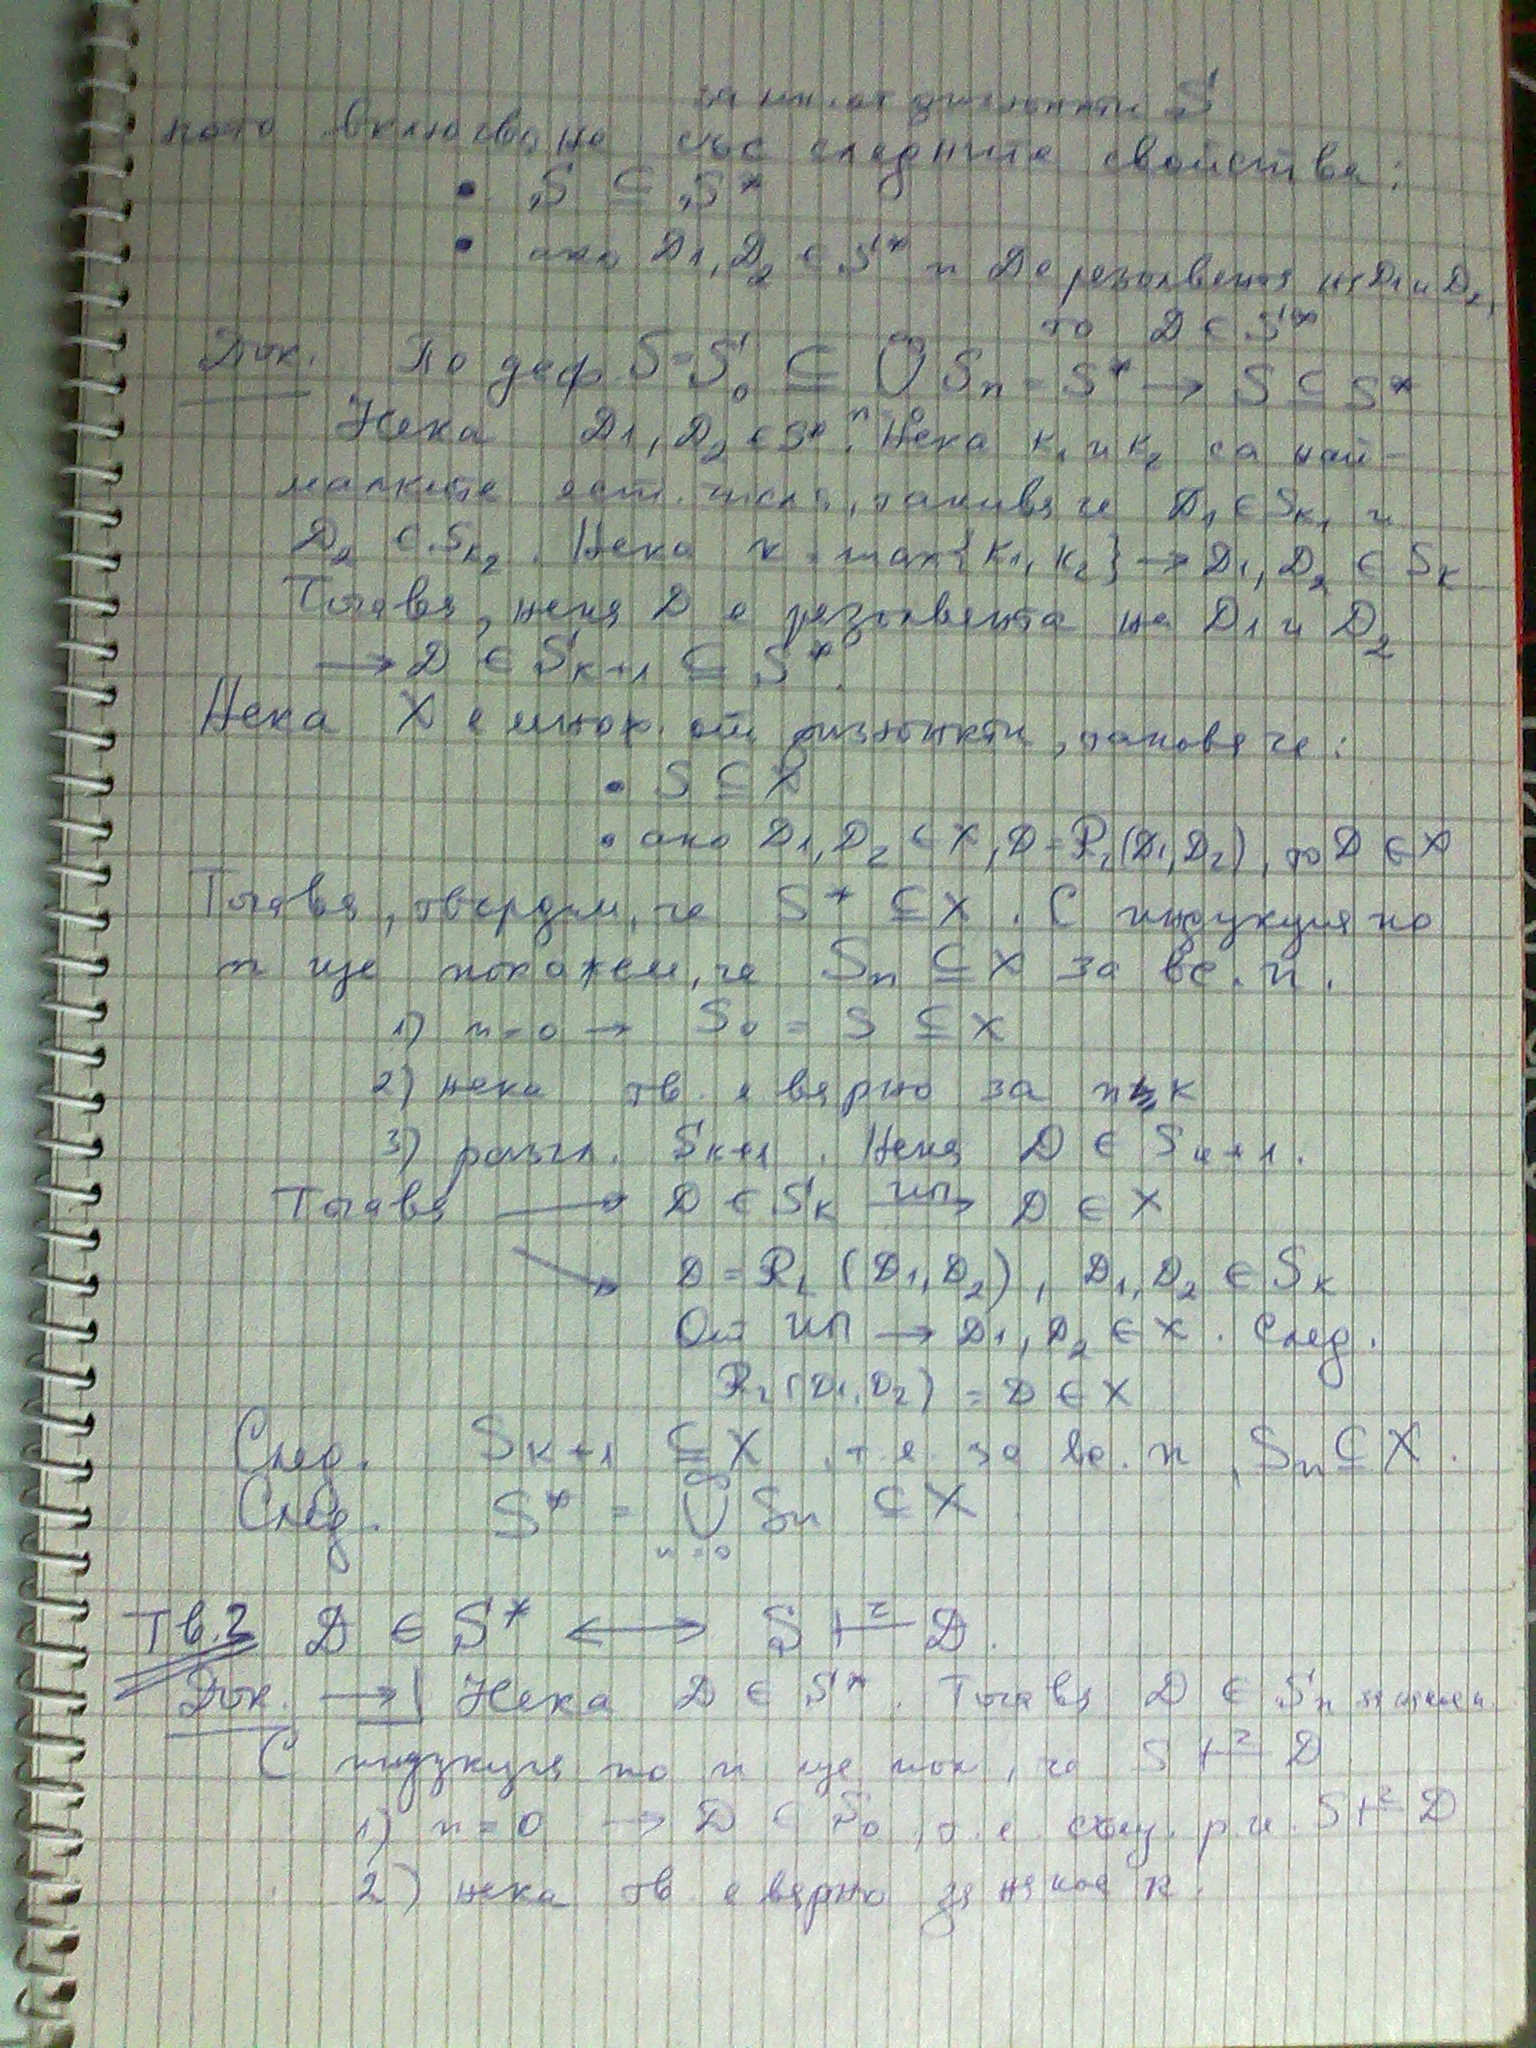 за мн. от дизюнкти S
ното включване със следните свойства:
• S ⊆ S*
• ако D1, D2 ∈ S* и D е резолвента на D1 и D2,
то D ∈ S*
Док. По деф. S = S0 ⊆ ∞⋃n=0 Sn = S* → S ⊆ S*
Нека D1, D2 ∈ S*. Нека k1 и k2 са най-
малките ест. числа, такива че D1 ∈ Sk1 и
D2 ∈ Sk2. Нека k = max{k1, k2} → D1, D2 ∈ Sk
Тогава, нека D е резолвента на D1 и D2
→ D ∈ Sk+1 ⊆ S*.
Нека X е множ. от дизюнкти, такова че:
• S ⊆ X
• ако D1, D2 ∈ X, D = Rz(D1, D2), то D ∈ X
Тогава, твърдим, че S* ⊆ X. С индукция по
n ще покажем, че Sn ⊆ X за вс. n.
1) n = 0 → S0 = S ⊆ X
2) нека тв. е вярно за k
3) разгл. Sk+1. Нека D ∈ Sk+1.
Тогава → D ∈ Sk ИП→ D ∈ X
↘ D = Rz(D1, D2), D1, D2 ∈ Sk
От ИП → D1, D2 ∈ X. След.
Rz(D1, D2) = D ∈ X
След. Sk+1 ⊆ X, т.е. за вс. n, Sn ⊆ X.
След. S* = ∞⋃n=0 Sn ⊆ X
Тв.2 D ∈ S* ↔ S ⊢r D.
Док. →| Нека D ∈ S*. Тогава D ∈ Sn за някое n.
С индукция по n ще пок, че S ⊢r D
1) n = 0 → D ∈ S0, т.е. същ. р.и. S ⊢r D
2) нека тв. е вярно за някое k.